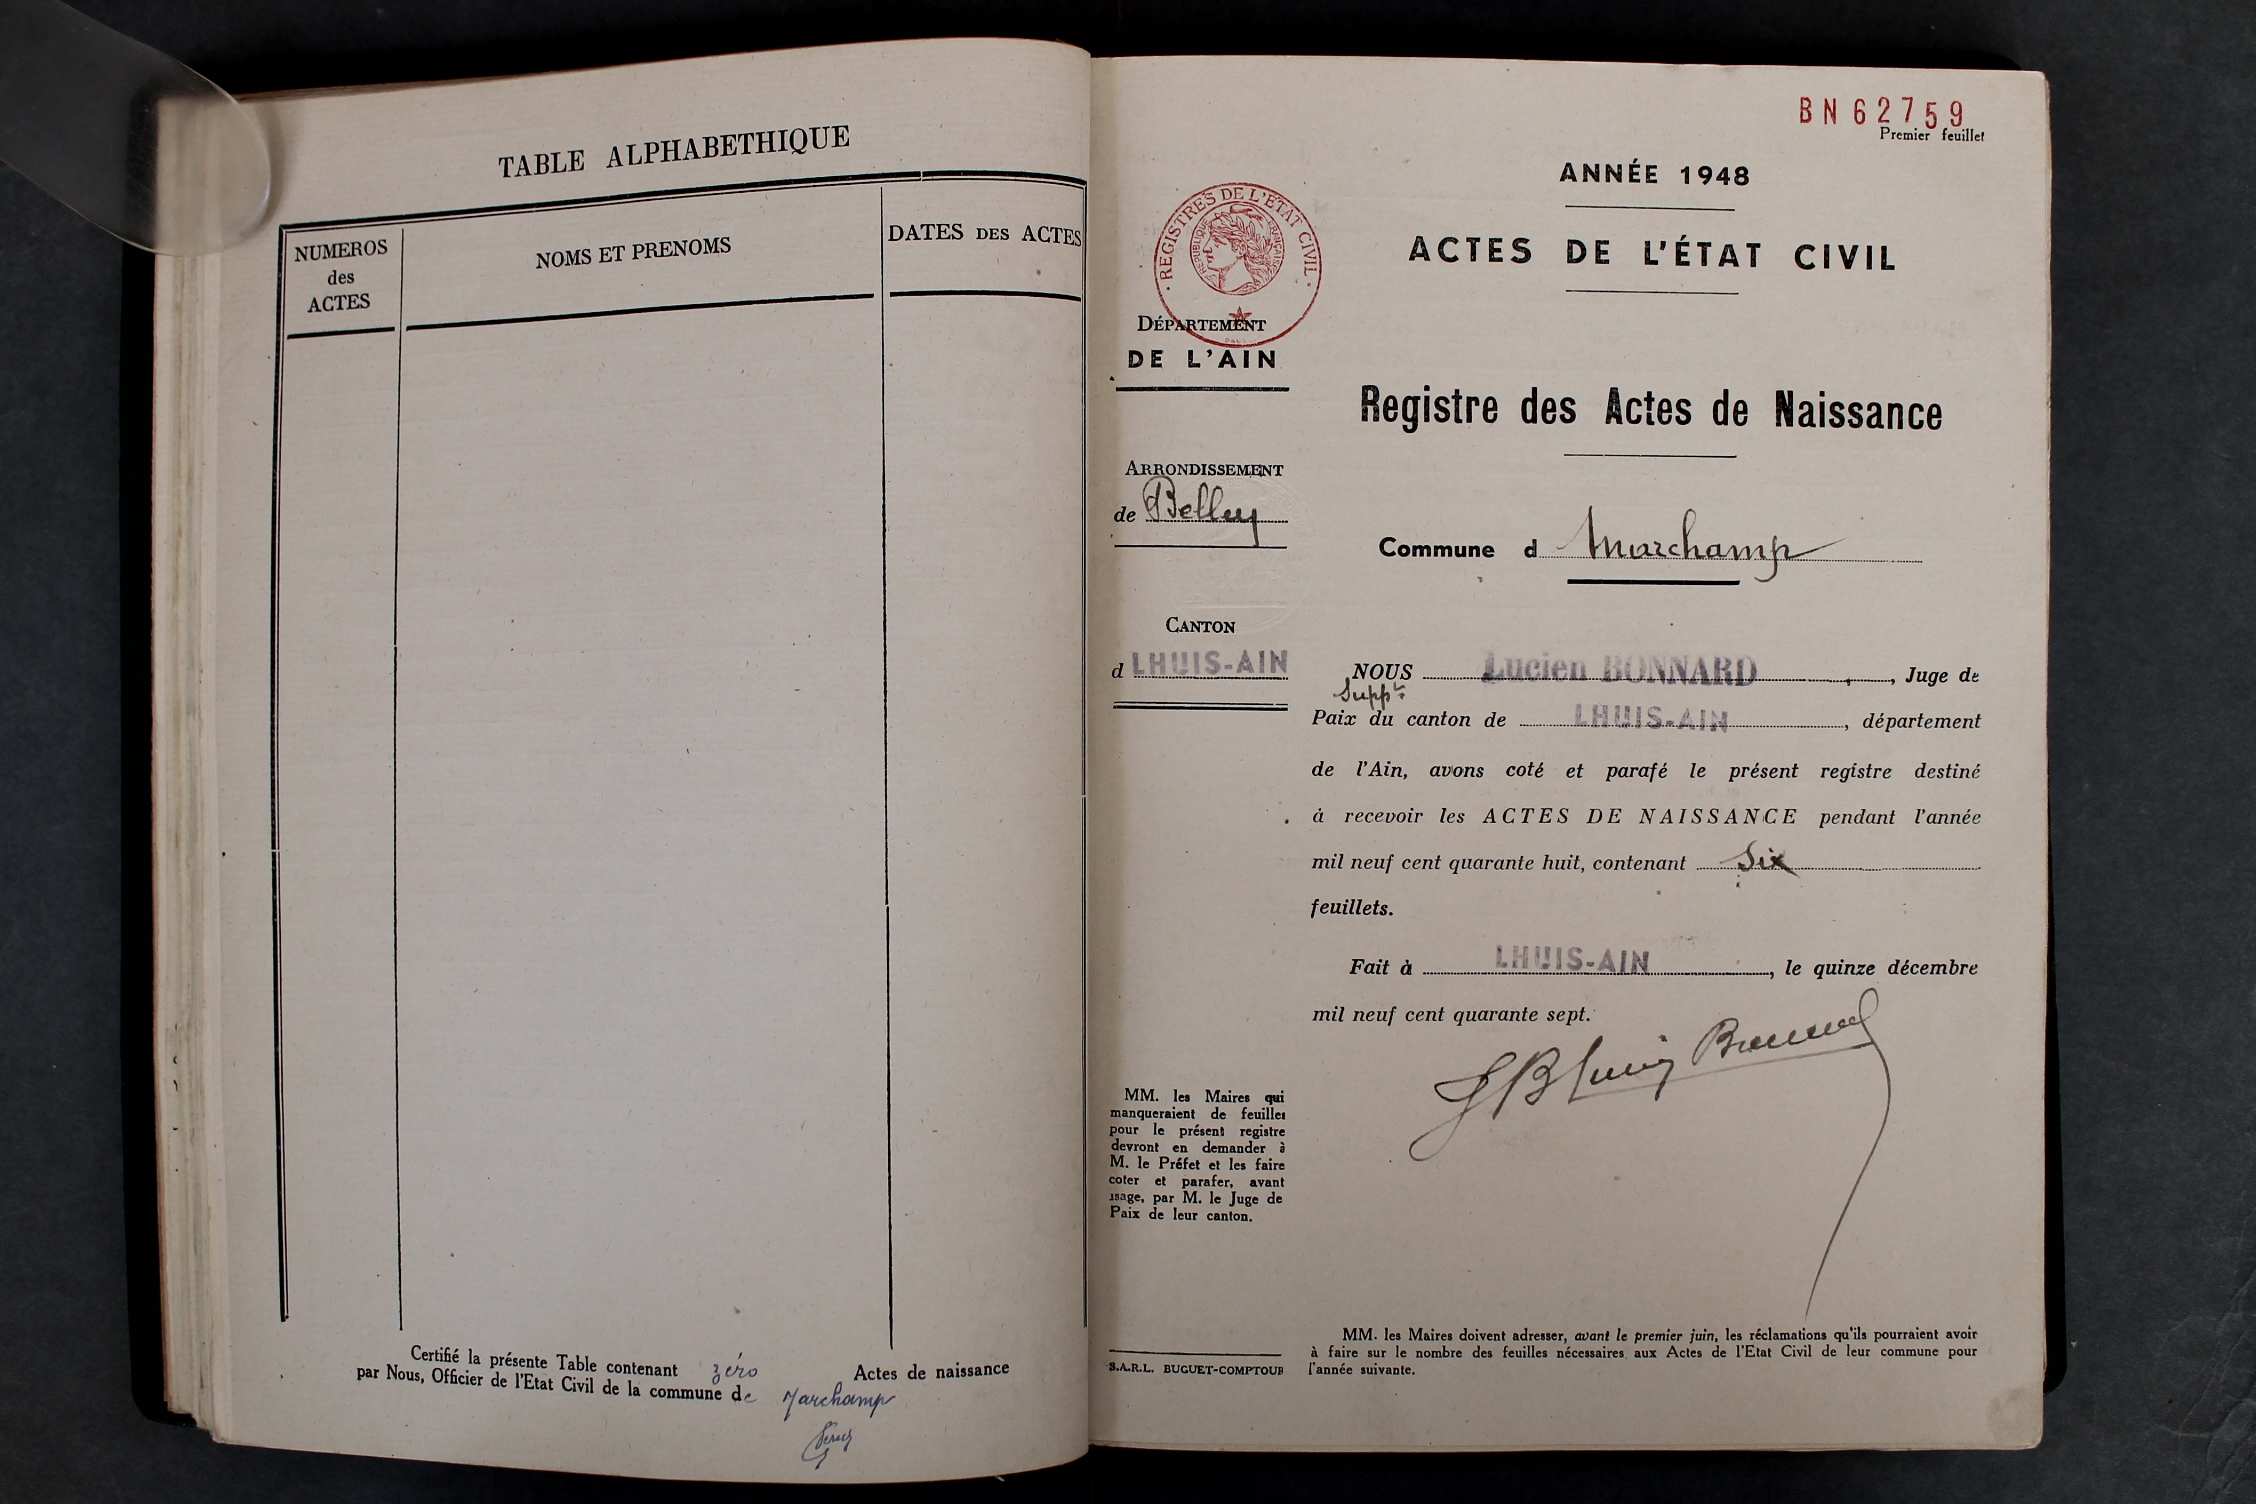 TABLE ALPHABETHIQUE
NUMEROS
des
ACTES
NOMS ET PRENOMS
DATES DES ACTES
Certifié la présente Table contenant zéro Actes de naissance
par Nous, Officier de l'Etat Civil de la commune de Marchamp
BN 62759
Premier feuillet
ANNÉE 1948
ACTES DE L'ÉTAT CIVIL
REGISTRES DE L'ÉTAT CIVIL
RÉPUBLIQUE FRANÇAISE
DÉPARTEMENT
DE L'AIN
Registre des Actes de Naissance
ARRONDISSEMENT
de Belley
Commune d Marchamp
CANTON
d LHUIS-AIN
NOUS Lucien BONNARD, Juge de
Suppt
Paix du canton de LHUIS-AIN, département
de l'Ain, avons coté et parafé le présent registre destiné
à recevoir les ACTES DE NAISSANCE pendant l'année
mil neuf cent quarante huit, contenant Six
feuillets.
Fait à LHUIS-AIN, le quinze décembre
mil neuf cent quarante sept.
MM. les Maires qui
manqueraient de feuilles
pour le présent registre
devront en demander à
M. le Préfet et les faire
coter et parafer, avant
usage, par M. le Juge de
Paix de leur canton.
S.A.R.L. BUGUET-COMPTOUR
MM. les Maires doivent adresser, avant le premier juin, les réclamations qu'ils pourraient avoir
à faire sur le nombre des feuilles nécessaires aux Actes de l'Etat Civil de leur commune pour
l'année suivante.